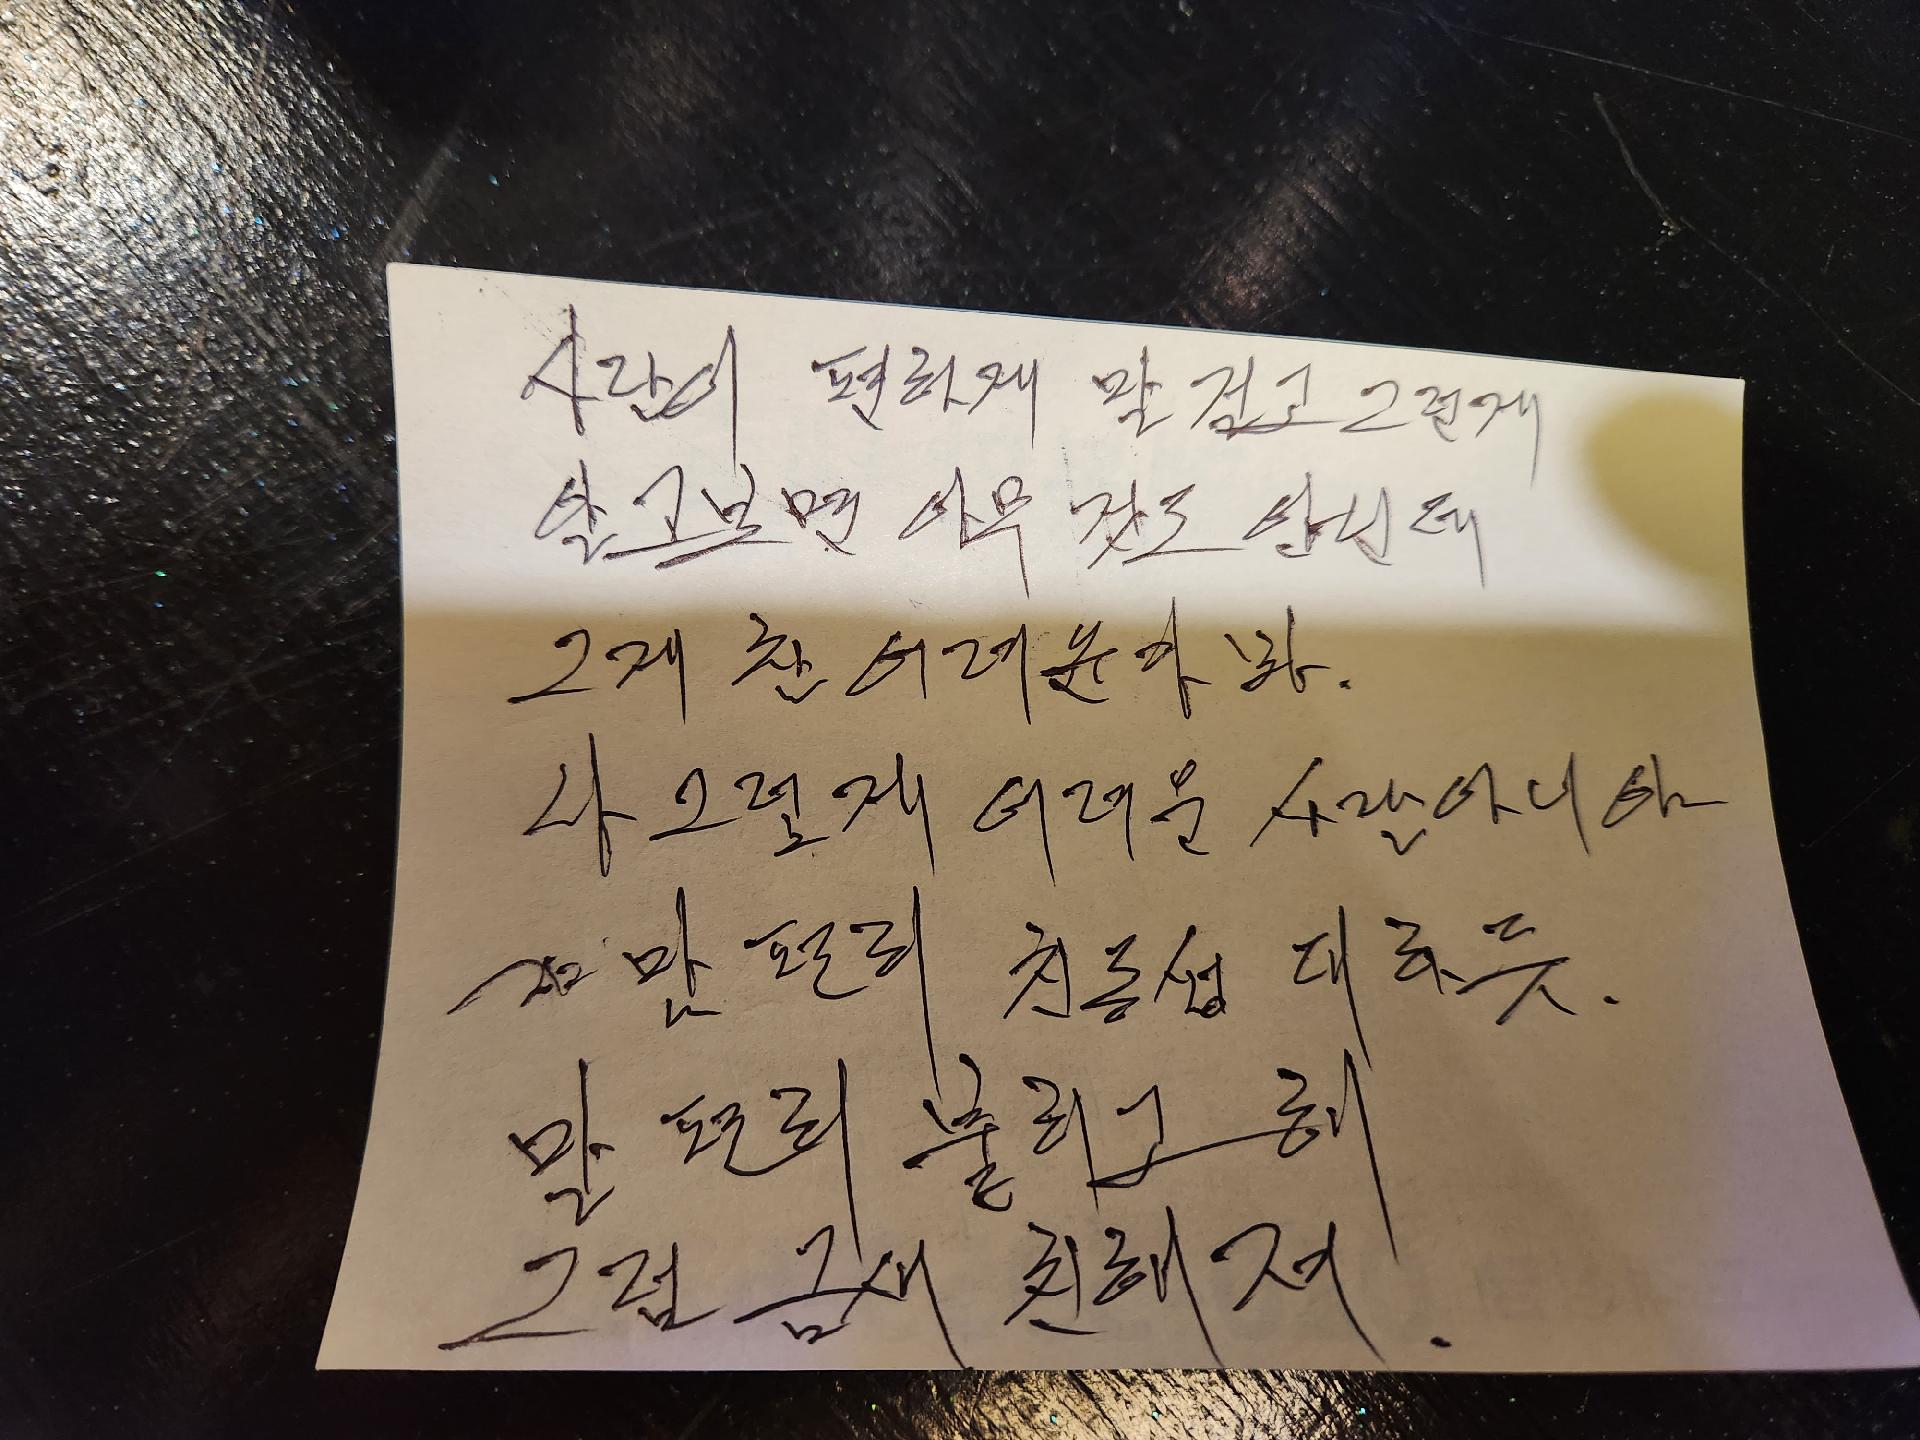 사람이 편하게 말 걸고 그런게
알고보면 아무 것도 아닌데
그게 참 어려운가 봐.
나 그렇게 어려운 사람아니야
말 편히 친동생 대하듯.
말 편히 붙히고 해
그럼 금새 친해져.